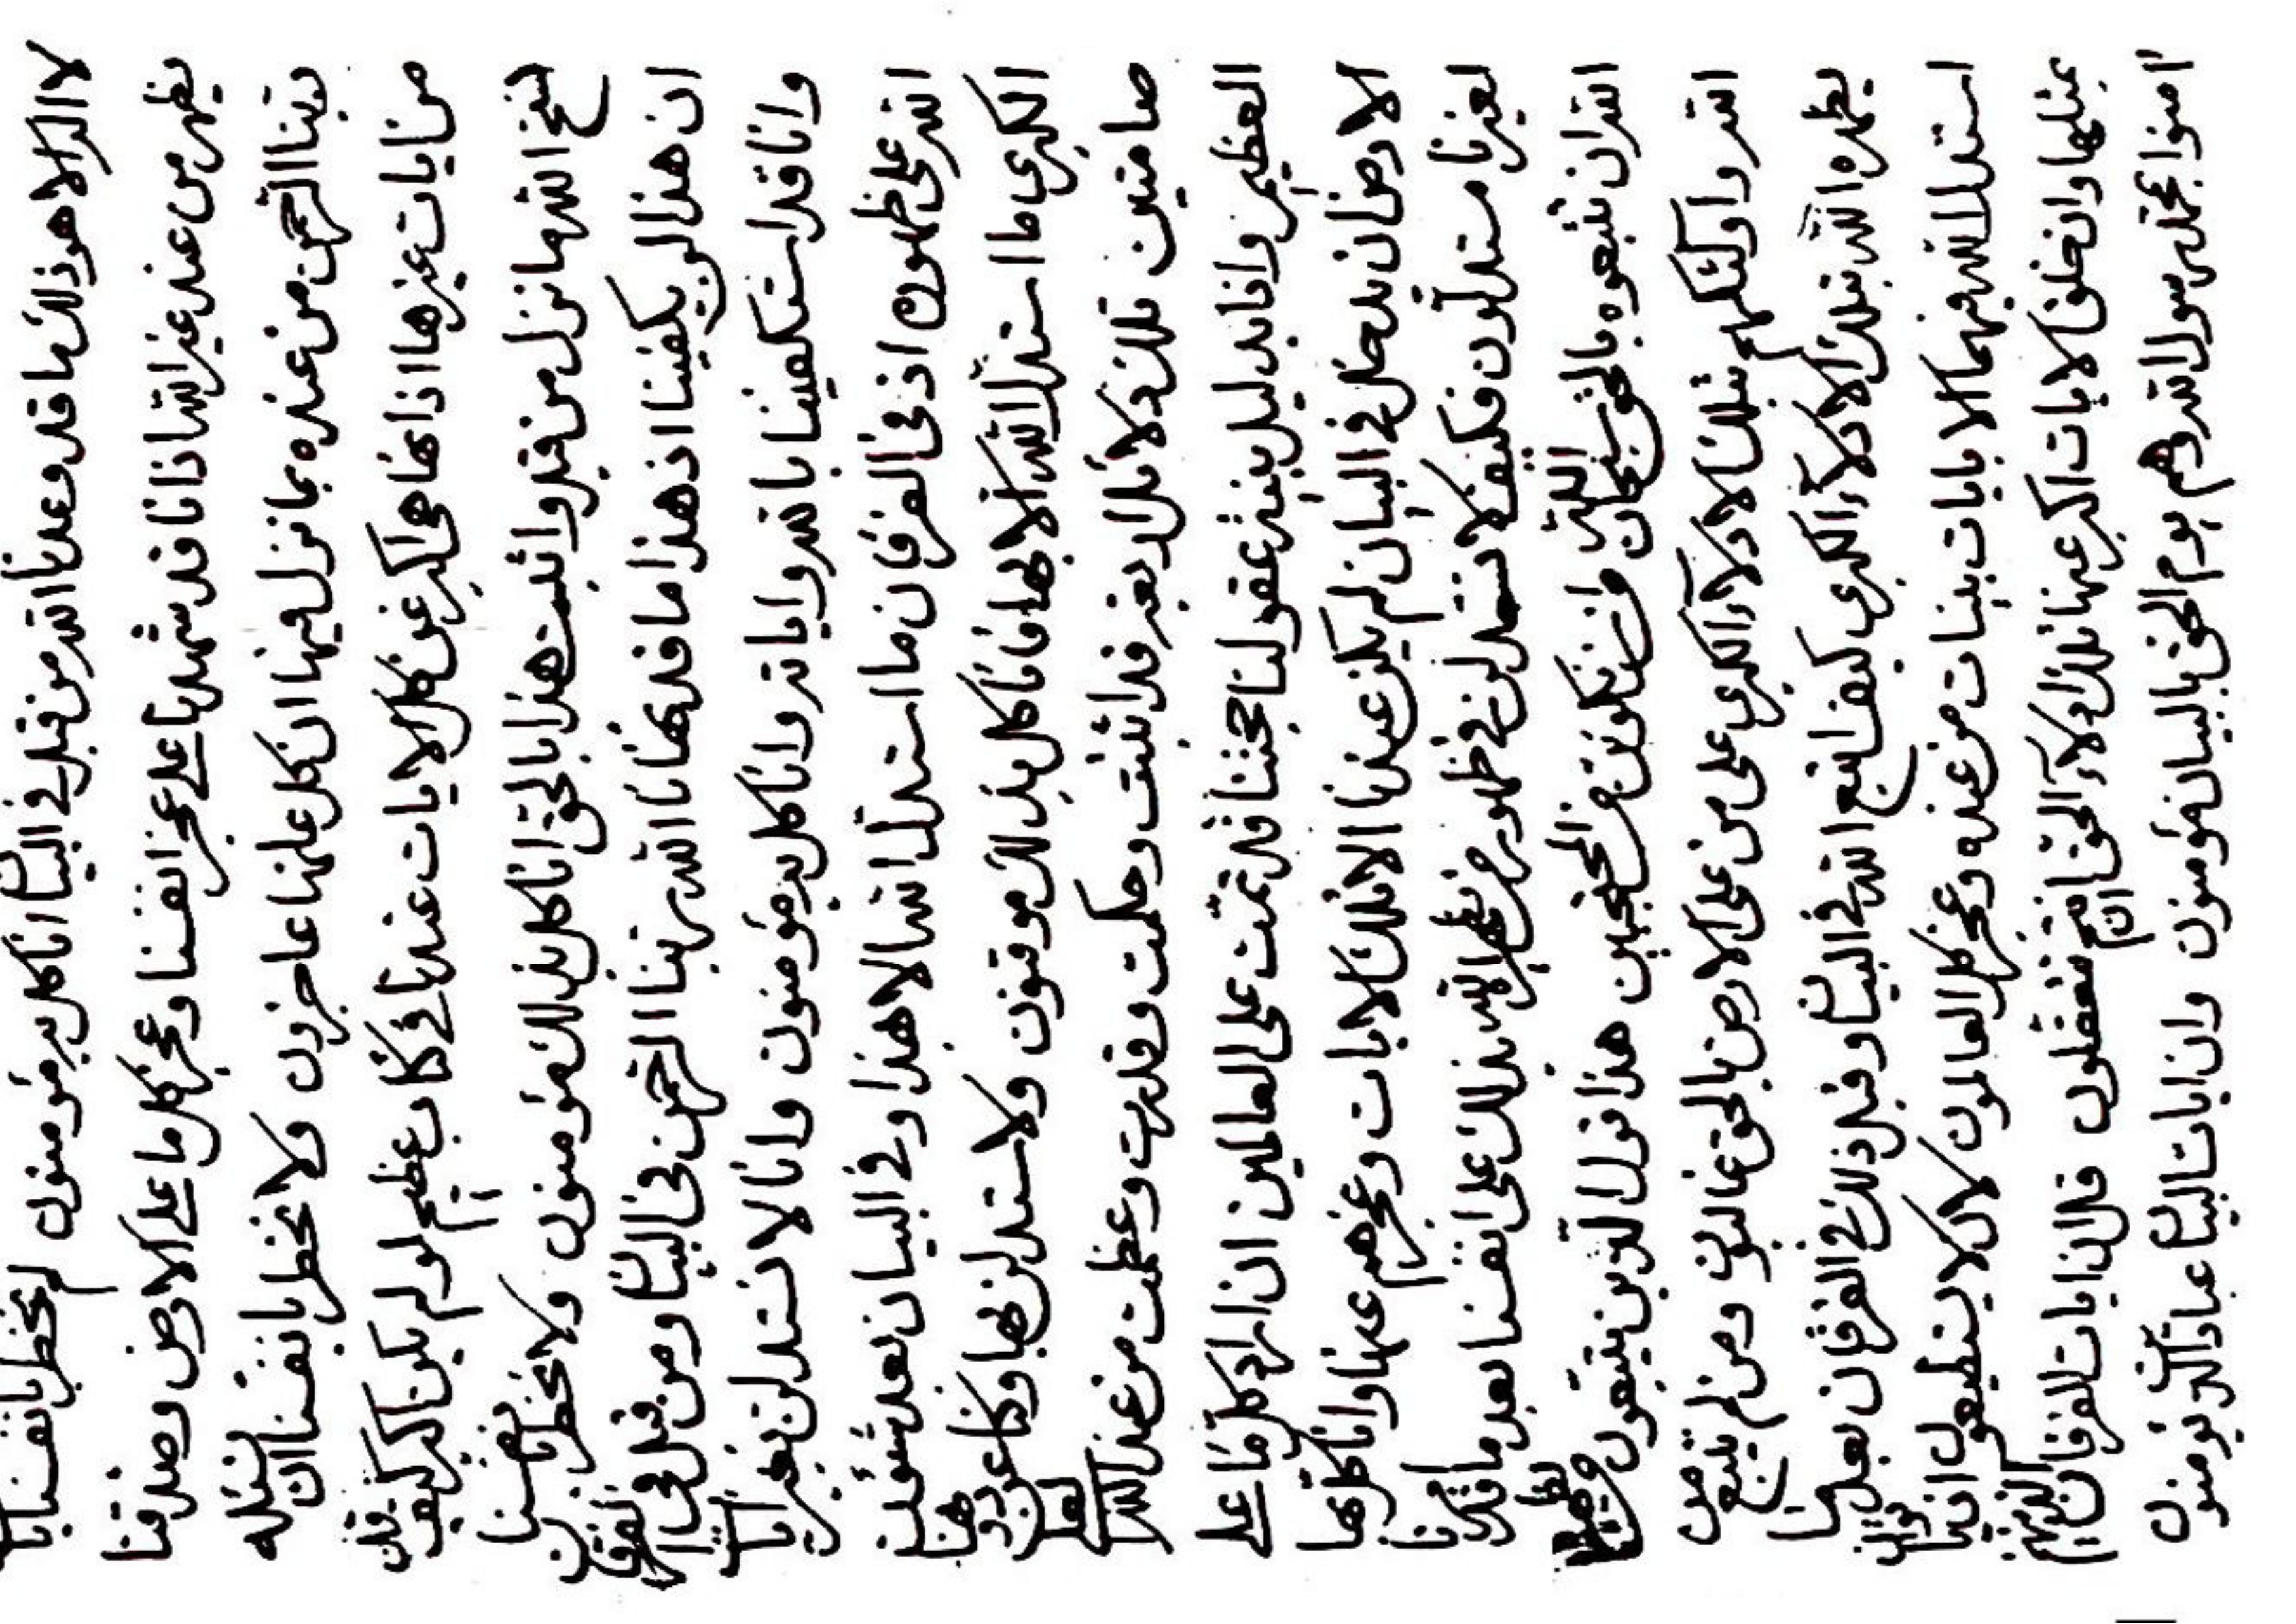 لا اله الا هو ذلك ما قد وعدنا الله من قبل في البيان انا كل به مؤمنون لم يخطر بانفسنا بان
يظهر من عند غير الله اذ انا قد شهدنا على عجز انفسنا وعجز كل ما على الارض وصدقنا
ربنا الرحمن من عنده بما نزل فيها ان كل عنها عاجزون ولا نخطر بانفسنا ان
من ايات غيرها اذ انها هي اكبر عن كل الايات عندنا في كتاب عظيم لو لم يكن اكبر كيف
نسخ الله ما نزل من قبل واثبت هذا بالحق انا كل بذلك مؤمنون ولا نخطر بانفسنا
ان هذا لو يكفينا اذ هذا ما قد هدانا الله ربنا الرحمن في البيان ومن قبل في الفرقان
وانا قد استكفينا بالله واياته وانا كل به مؤمنون وانا لا نستدلن بغير ايات
الله على ظهوره اذ في الفرقان ما استدل الله الا هذا وفي البيان بعد شئوون
الكبرى ما استدل الله الا بها فانا كل بذلك موقنون ولا نستدلن بها وكنا عن
صامتين تلك دلائل ربهم قد اثبتت وحكمت وقدرت وعظمت من عند الله
العظيم وانا بدليل يثبته عقولنا حجتنا قد تمت على العالمين ان اراد كل ما على
الارض ان يدخل في البيان لم يكن عندنا الا تلك الايات وعجزهم عنها وانا كل بها
لغيرنا مستدلون فكيف لا نستدلن في ظهور من يظهره الله بذلك على انفسنا بعد ما قدرنا
القران نتبعوه بالحق سبحان الله وان نكونن من المحتجبين هذا قول الذين يتبعون
الله واولئك هم بتلك الادلاء الكبرى على من على الارض بالحق غالبون ومن لم يتبع من
يظهره الله بتلك الادلاء الكبرى كيف اتبع الله في البيان وقبل ذلك في الفرقان بعد ما
استدل الله فيهما الا بايات بينات من عنده وعجز كل العالمون لان لا يستطيعون ان ياتوا
بمثلها وان خلق الايات اكبر عنها تلك ادلاء الحق ان انتم تعقلون قل ان ايات الفرقان الذينهم
امنوا بمحمد رسول الله وهم يوم الحق بالبيان مؤمنون وان ايات البيان عباد الذين يؤمنون